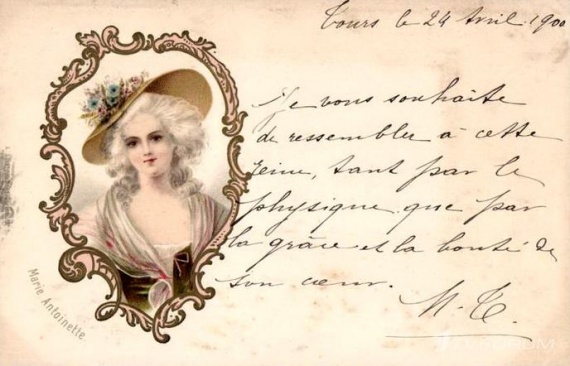 Tours le 24 Avril 1900
Je vous souhaite
de ressembler à cette
reine, tant par le
physique que par
la grâce et la bonté de
son cœur.
M. T.
Marie Antoinette